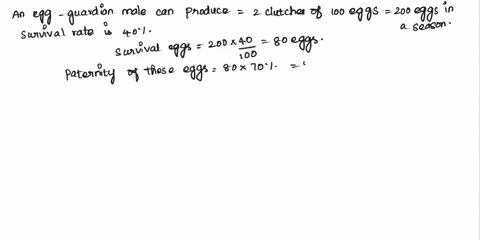 An egg - guardian male can produce = 2 clutches of 100 eggs = 200 eggs in a season.
Survival rate is 40%.
Survival eggs = 200 × 40/100 = 80 eggs.
Paternity of these eggs = 80 × 70% =